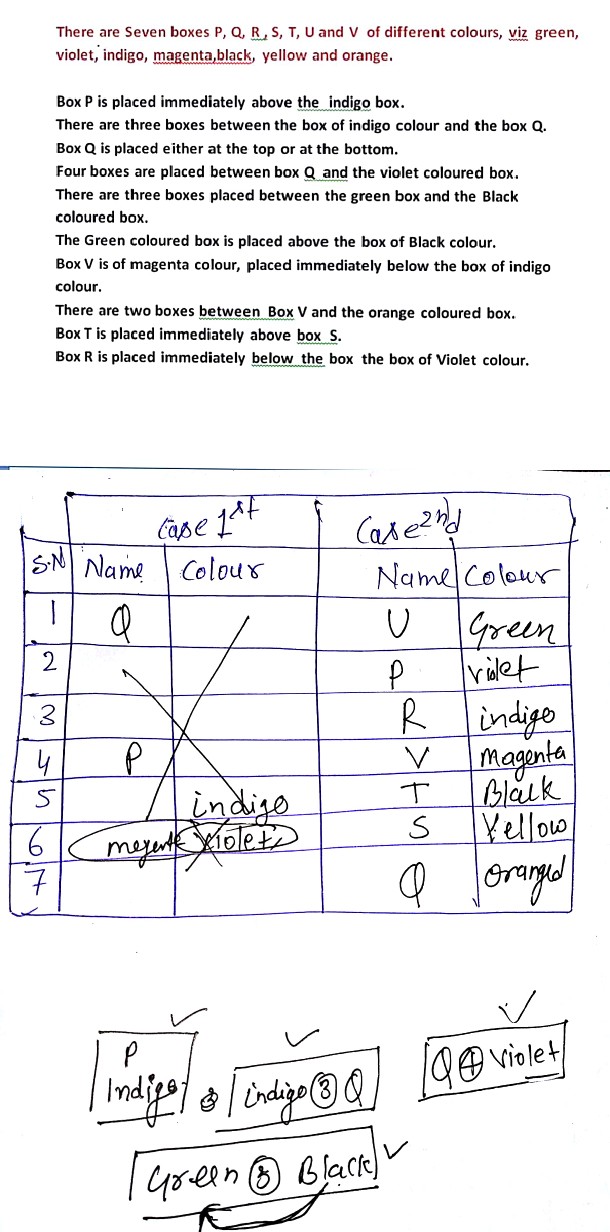 There are Seven boxes P, Q, R , S, T, U and V of different colours, viz green,
violet, indigo, magenta,black, yellow and orange.
Box P is placed immediately above the indigo box.
There are three boxes between the box of indigo colour and the box Q.
Box Q is placed either at the top or at the bottom.
Four boxes are placed between box Q and the violet coloured box.
There are three boxes placed between the green box and the Black
coloured box.
The Green coloured box is placed above the box of Black colour.
Box V is of magenta colour, placed immediately below the box of indigo
colour.
There are two boxes between Box V and the orange coloured box.
Box T is placed immediately above box S.
Box R is placed immediately below the box the box of Violet colour.
Case 1st Case 2nd
S.N Name Colour Name Colour
1 Q U Green
2 P violet
3 R indigo
4 P V Magenta
5 indigo T Black
6 Violet S Yellow
7 Q
P
Indigo indigo 3 Q Q 4 violet
Green 3 Black